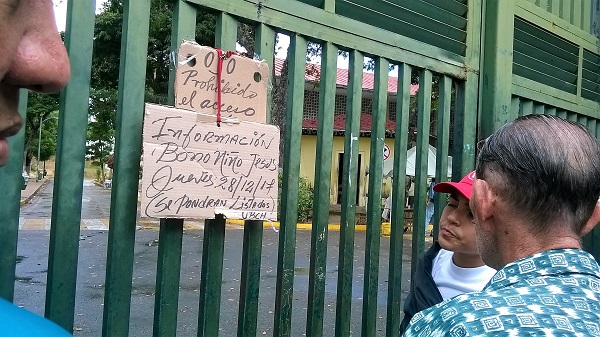 OJO
Prohibido
el acceso
Información
Bono Niño Jesús
Jueves 28/12/17
(Se Pondran Listados)
UBCH